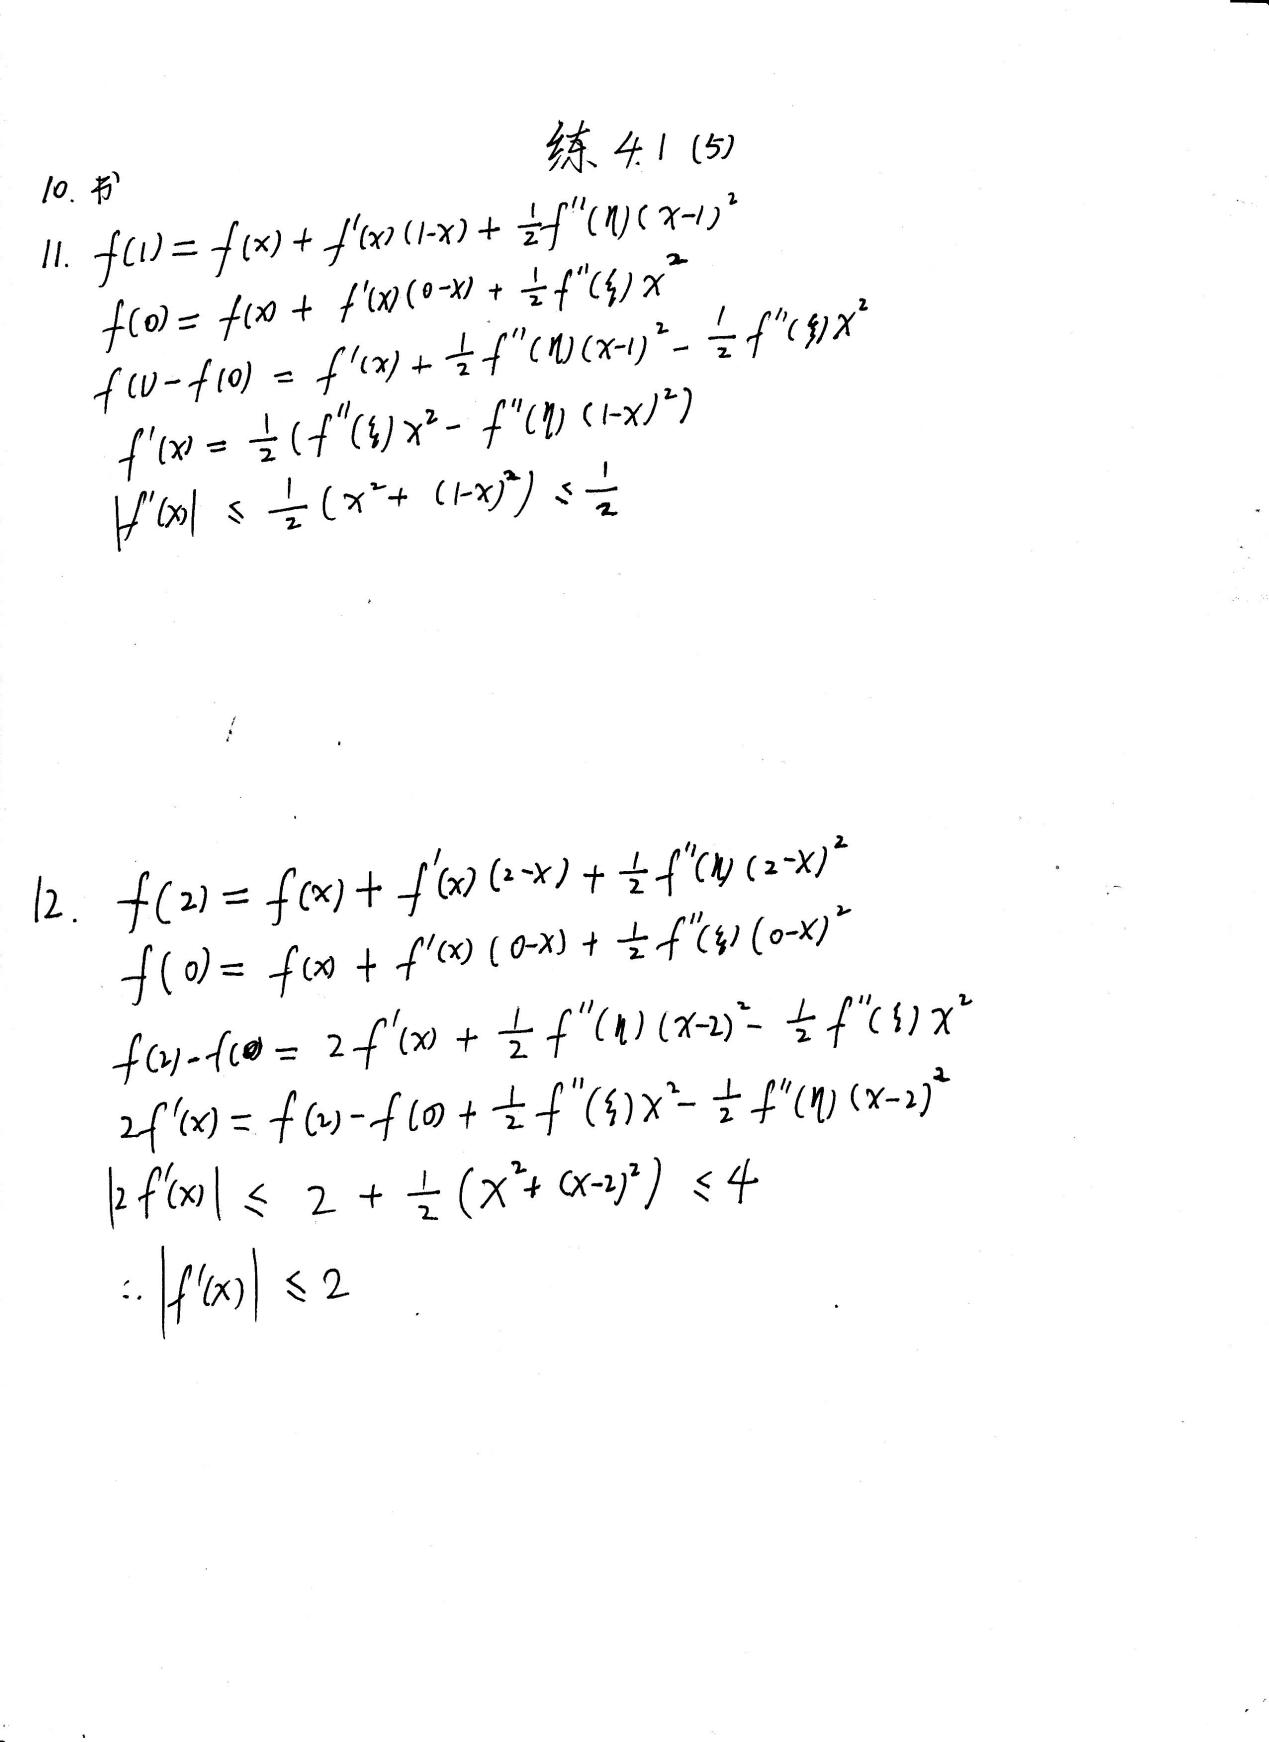 练 4.1 (5)
10. 书
11. f(1) = f(x) + f'(x)(1-x) + 1/2 f''(η)(x-1)²
f(0) = f(x) + f'(x)(0-x) + 1/2 f''(ξ)x²
f(1) - f(0) = f'(x) + 1/2 f''(η)(x-1)² - 1/2 f''(ξ)x²
f'(x) = 1/2 (f''(ξ)x² - f''(η)(1-x)²)
|f'(x)| ≤ 1/2 (x² + (1-x)²) ≤ 1/2
12. f(2) = f(x) + f'(x)(2-x) + 1/2 f''(η)(2-x)²
f(0) = f(x) + f'(x)(0-x) + 1/2 f''(ξ)(0-x)²
f(2) - f(0) = 2f'(x) + 1/2 f''(η)(x-2)² - 1/2 f''(ξ)x²
2f'(x) = f(2) - f(0) + 1/2 f''(ξ)x² - 1/2 f''(η)(x-2)²
|2f'(x)| ≤ 2 + 1/2 (x² + (x-2)²) ≤ 4
∴ |f'(x)| ≤ 2